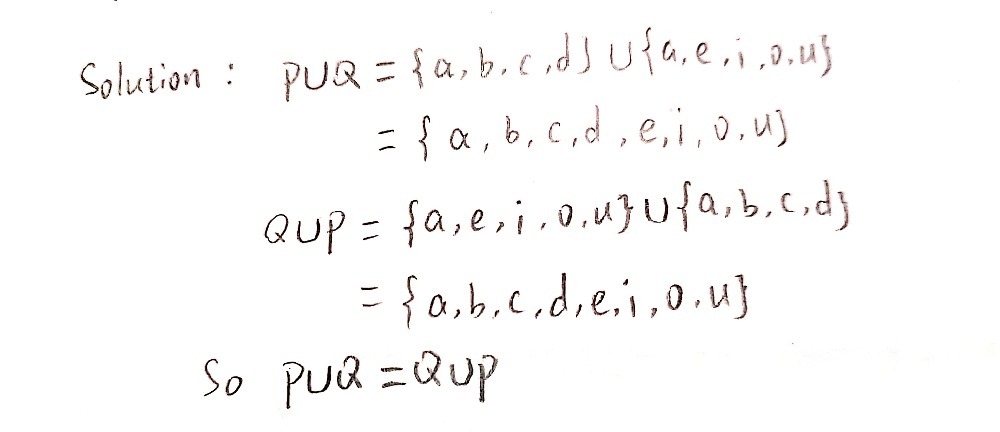 Solution : P∪Q = {a, b, c, d} ∪ {a, e, i, o, u}
= {a, b, c, d, e, i, o, u}
Q∪P = {a, e, i, o, u} ∪ {a, b, c, d}
= {a, b, c, d, e, i, o, u}
So P∪Q = Q∪P